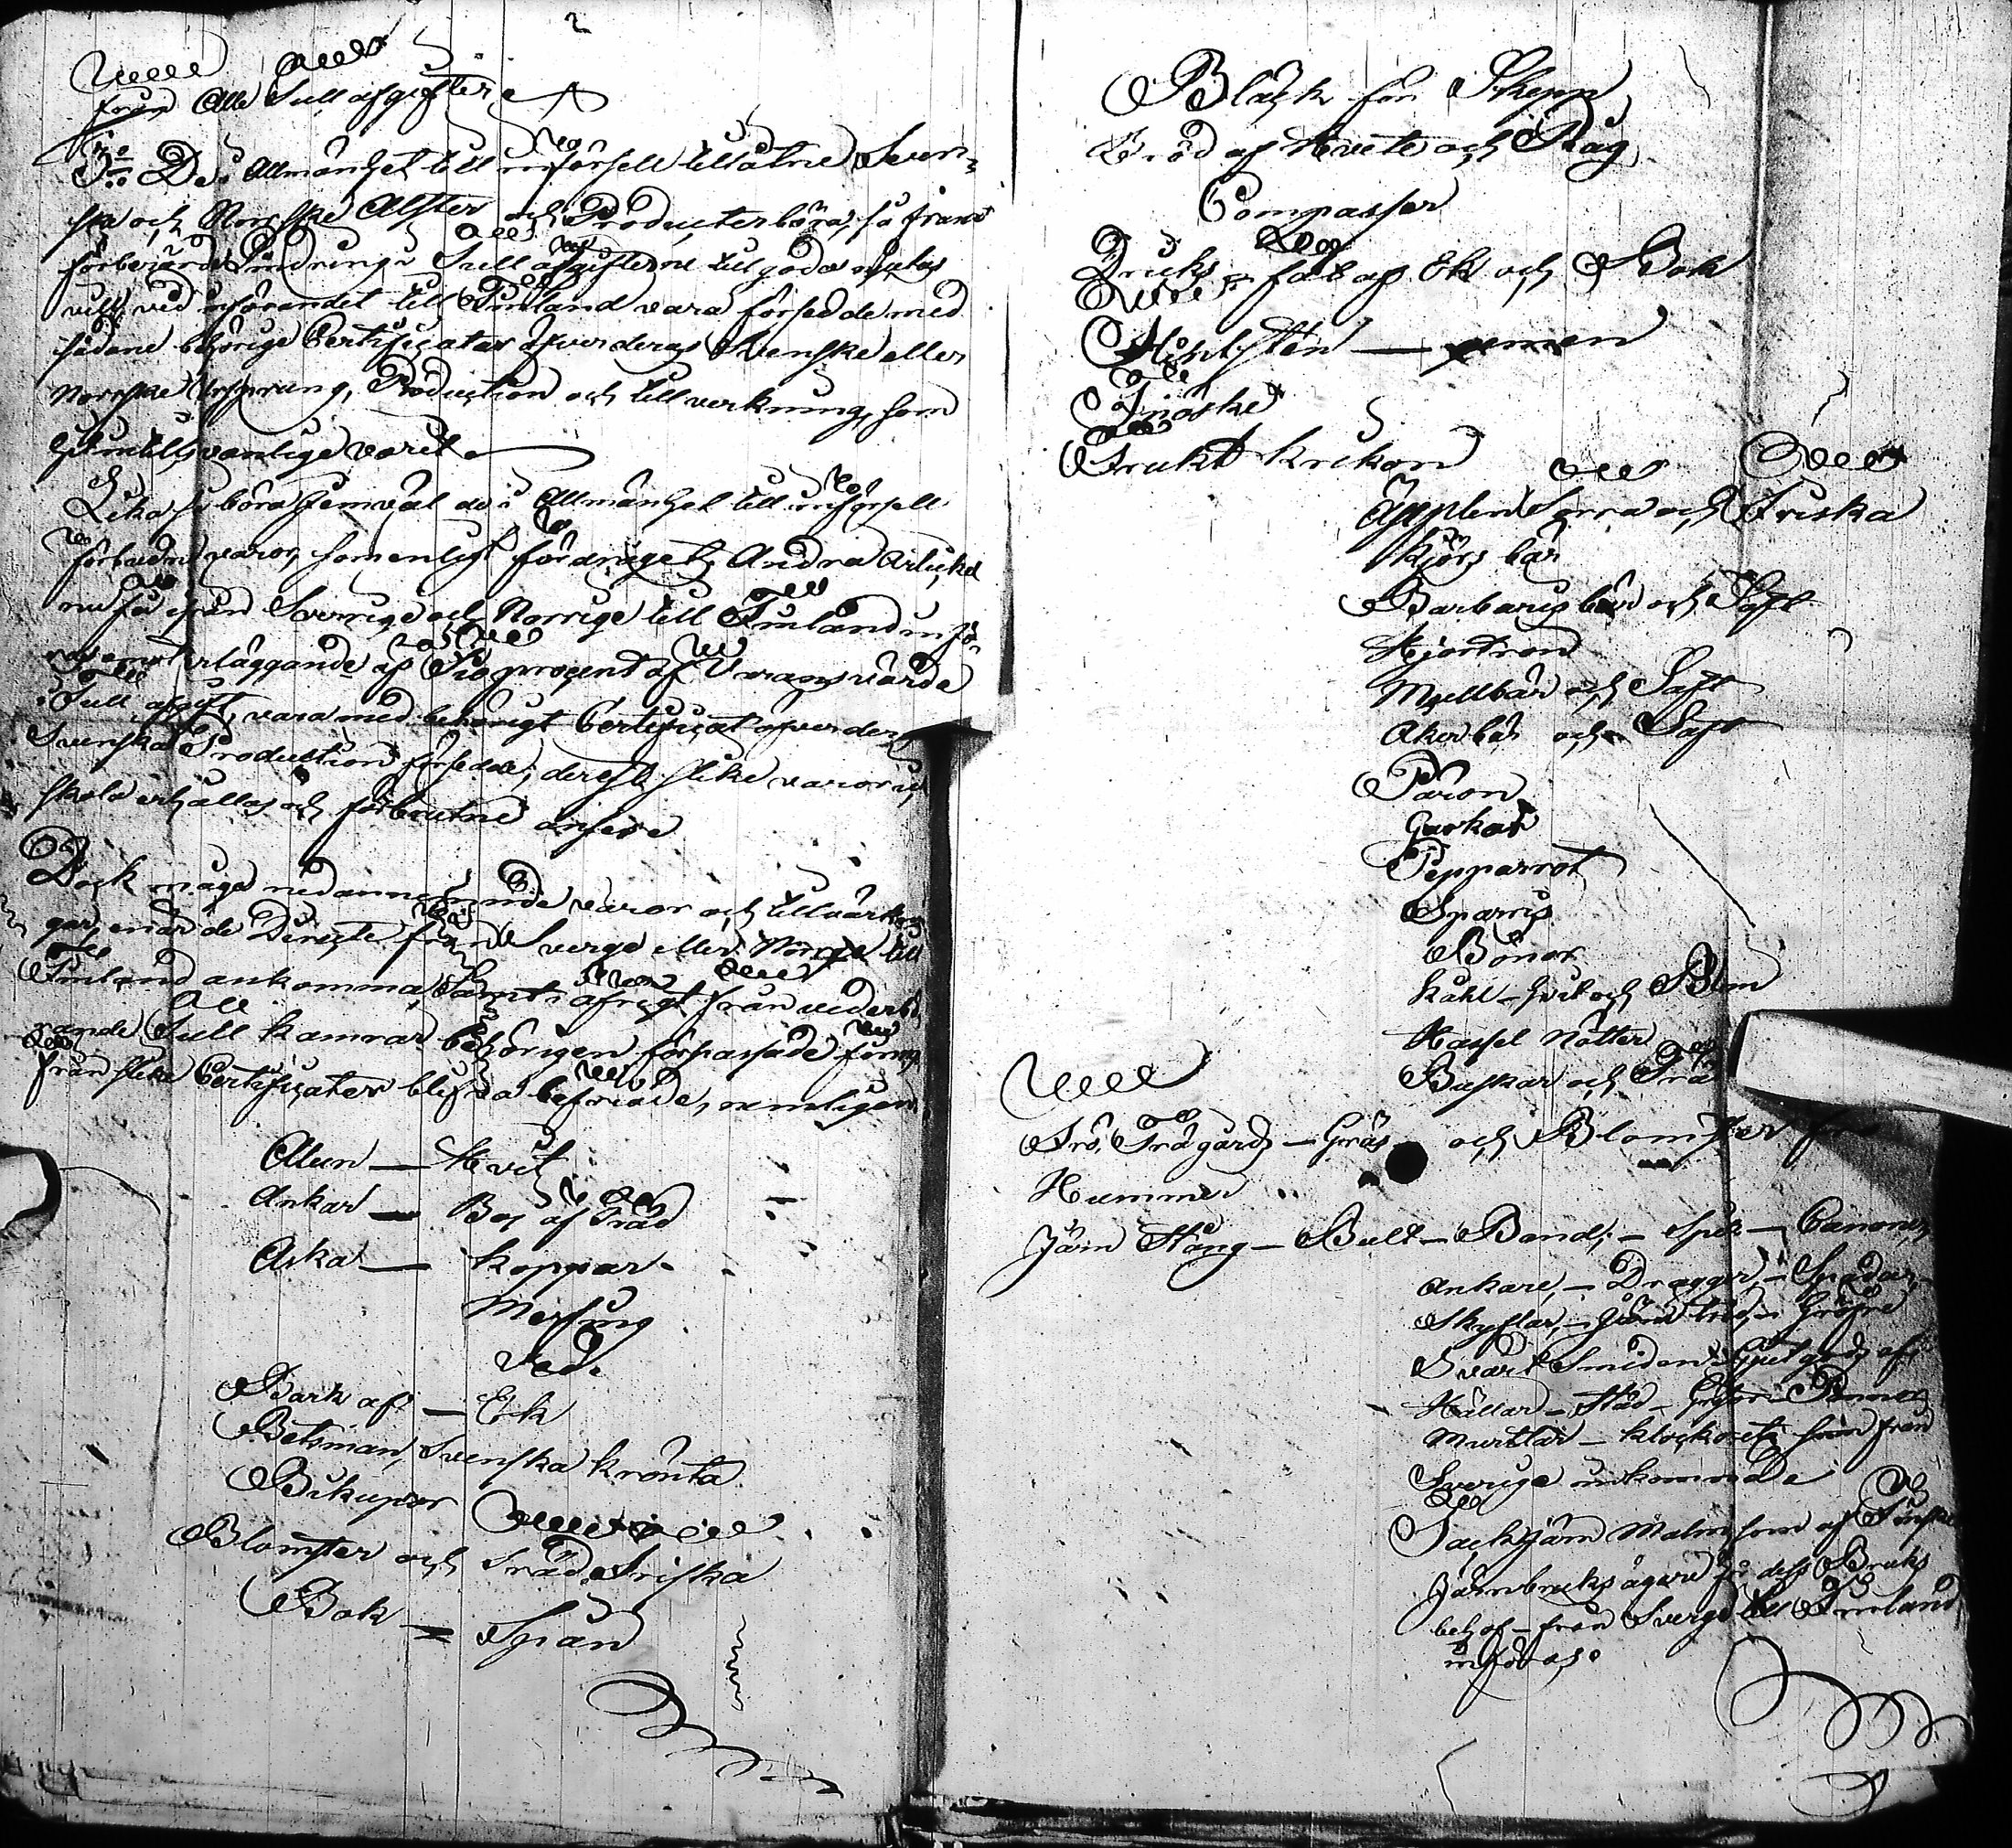 2
från Alle Tull afgifter
3:o De i Allmänhet till införsell tillåtne Sven-
ska och Norrske Alster och Producter böra, så framt
förberörde Lindring i Tull afgifterne till godo njutas
vill, vid införandet till Finland vara försedde med
sådane behörige Certificater öfver deras Svenske eller
Norrske Ursprung, Production och tillverkning, som
hittills vanlige varit
Lika så böra jemväl de i Allmänhet till införsell
förbudne varor, som enligt fördragets Andra Artickel
nu få ifrån Sverrige och Norrige till Finland infö-
ras emot erläggande af Tio procent af Varans värde
i Tull afgift, vara med behörigt Certificat öfver dess
Svenska Production försedde; derest slike varor ej
skola erhållas och förbrutne anses
Dock måga nedannemnde varor och tillvärknin-
gar, enär de Directe från Sverge eller Norge till
Finland ankomma, Samt i öfrigt från vederbö-
rande Tull kamrar behörigen förpassade finnas,
från slike Certificater blifva befriade, nemligen
Alun — Hvit
Ankar — Boj af Träd
Aska — Koppar
Messing
Ved
Bark af — Ek
Betsman, Svenska krönta
Bikupor
Blomster och Träd Friska
Bok — Spån
Bläck för Skepp
Bröd af Hvete och Råg
Compasser
Dricks – fat af Ek och Bok
Flintsten —
Fnöske
Frukt Krikon
Äpplen Torra och Friska
Kjörs bär
Barbaris bär och Saft
Hjortron
Mjellbär och Saft
Åkerbär och Saft
Päron
Gurkor
Pepparrot
Sparris
Bönor
Kåhl – Hvit och Blom
Hassel Nötter
Buskar och Trä
Frö, Trägårds – Gräs och Blomster frö
Hummer
Järn Stång – Bult – Band, – Spik – Canoner,
Ankare, – Draggar, – Spadar, –
Skyflar, – Järn tråd, – Gröfre
Svart Smiden Gjutgods af
Hällar – Städ – Grytor – Pannor
Murtlar – Klockor etc som från
Sverige inkommade
Tackjärn Malm som af Finske
Järnbruks ägare för dess Bruks
behof – från Sverge till Finland
införas